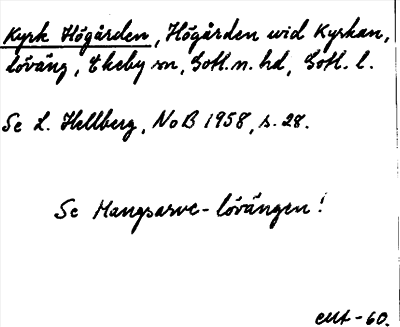 Kyrk Högården, Högården wid Kyrkan,
löväng, Ekeby sn, Gotl. n. hd, Gotl. l.
Se L. Hellberg, NoB 1958, s. 28.
Se Mangsarve-lövängen!
-60.